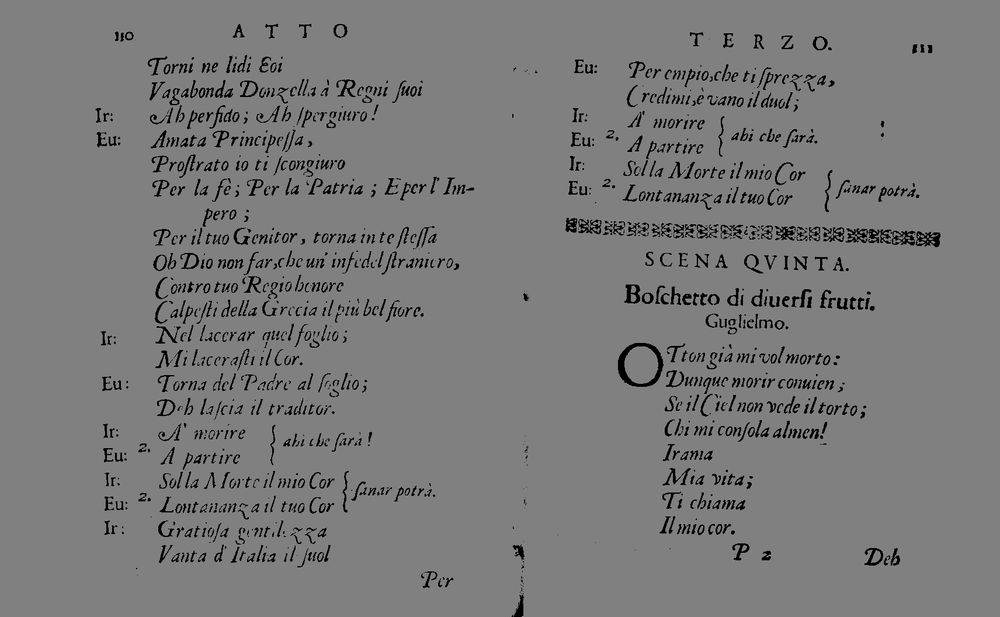 110 ATTO
Torni ne lidi Eoi
Vagabonda Donzella à Regni ſuoi
Ir: Ah perfido; Ah ſpergiuro!
Eu: Amata Principeſſa,
Proſtrato io ti ſcongiuro
Per la fè; Per la Patria; E per l'Im-
pero;
Per il tuo Genitor, torna in te ſteſſa
Oh Dio non far, che un' infedel ſtraniero,
Contro tuo Regio honore
Calpeſti della Grecia il più bel fiore.
Ir: Nel lacerar quel foglio;
Mi laceraſti il Cor.
Eu: Torna del Padre al ſoglio;
Deh laſcia il traditor.
Ir: A' morire
Eu: 2. A partire { ahi che ſarà!
Ir: Sol la Morte il mio Cor
Eu: 2. Lontananza il tuo Cor { ſanar potrà.
Ir: Gratioſa gentilezza
Vanta d'Italia il ſuol
Per
TERZO. 111
Eu: Per empio, che ti ſprezza,
Credimi, è vano il duol;
Ir: A' morire
Eu: 2. A partire { ahi che ſarà.
Ir: Sol la Morte il mio Cor
Eu: 2. Lontananza il tuo Cor { ſanar potrà.
SCENA QVINTA.
Boſchetto di diuerſi frutti.
Guglielmo.
OTton già mi vol morto:
Dunque morir conuien;
Se il Ciel non vede il torto;
Chi mi conſola almen!
Irama
Mia vita;
Ti chiama
Il mio cor.
P 2 Deh